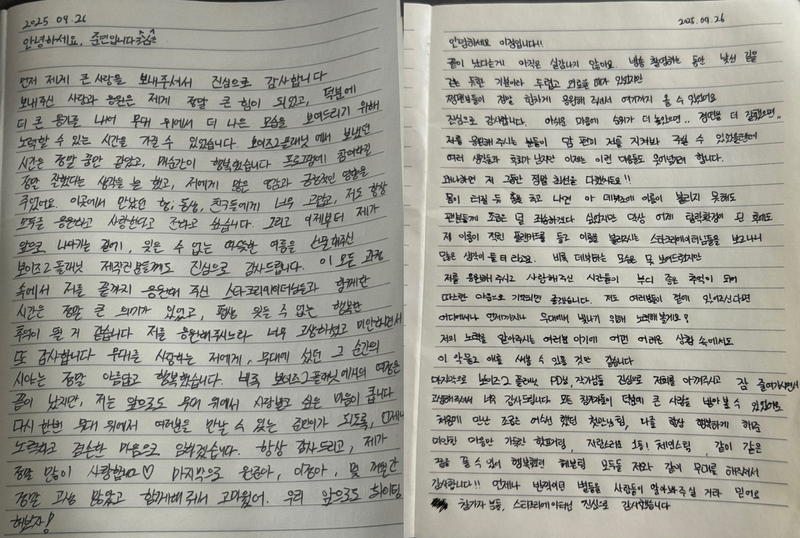 2025 09.26
안녕하세요, 준민입니다
먼저 제게 큰 사랑을 보내주셔서 진심으로 감사합니다
보내주신 사랑과 응원은 제게 정말 큰 힘이 되었고, 덕분에
더 큰 용기를 내어 무대 위에서 더 나은 모습을 보여드리기 위해
노력할 수 있는 시간을 가질 수 있었습니다. 보이즈2플래닛에서 보냈던
시간은 정말 꿈만 같았고, 매순간이 행복했습니다 프로그램에 참여하길
정말 잘했다는 생각을 늘 했고, 저에게 많은 영감과 긍정적인 영향을
주었어요. 이곳에서 만났던 형, 동생, 친구들에게 너무 고맙고, 저도 항상
모두를 응원하고 사랑한다고 전하고 싶습니다. 그리고 이제부터 제가
앞으로 나아가는 길에, 잊을 수 없는 따뜻한 여름을 선물해주신
보이즈2플래닛 제작진분들께도 진심으로 감사드립니다. 이 모든 과정
속에서 저를 끝까지 응원해 주신 스타크리에이터님들과 함께한
시간은 정말 큰 의미가 있었고, 평생 잊을 수 없는 행복한
추억이 될 거 같습니다 저를 응원해주시느라 너무 고생하셨고 미안하면서
또 감사합니다 무대를 사랑하는 저에게, 무대에 섰던 그 순간의
시야는 정말 아름답고 행복했습니다. 비록 보이즈2플래닛에서의 여정은
끝이 났지만, 저는 앞으로도 무대 위에서 사랑받고 싶은 마음이 큽니다
다시 한번 무대 위에서 여러분을 만날 수 있는 순간이 되도록, 언제나
노력하고 겸손한 마음으로 임하겠습니다. 항상 감사드리고, 제가
정말 많이 사랑합니다♡ 마지막으로 이정아, 몇 개월간
정말 고생 많았고 함께해 줘서 고마웠어. 우리 앞으로도 화이팅
해보자!
2025.09.26
안녕하세요 이정입니다!!
끝이 났다는게 아직은 실감나지 않아요. 낯선 길을
걷는 듯한 기분이라 두렵고 외로울 때가 있었지만
팬분들이 정말 힘차게 응원해 주셔서 여기까지 올 수 있었어요
진심으로 감사합니다. 아쉬운 마음에 순위가 더 높았으면.. 더 잘했으면..
저를 응원해 주시는 분들이 맘 편히 저를 지켜봐 주실 수 있었을텐데
여러 생각들과 후회가 남지만 이제는 이런 마음도 웃어넘기려 합니다.
왜냐하면 저 그만큼 정말 최선을 다했거든요!!
몸이 터질 듯 춤을 추고 나면 아 데뷔조에 이름이 불리지 못해도
팬분들께 조금은 덜 죄송하겠다 싶었지만 막상 어제 탈락확정이 된 후에도
제 이름이 적힌 플랜카드를 들고 이름을 불러주시는 스타크리에이터님들을 보고나니
많은 생각이 들더라고요. 비록 데뷔하는 모습은 못 보여드렸지만
저를 응원해 주시고 사랑해주신 시간들이 부디 좋은 추억이 되어
따스한 마음으로 기억되면 좋겠습니다. 저도 여러분들이 곁에 있어주신다면
어디에서나 언제까지나 무대에서 빛나기 위해 노력해볼게요?
저의 노력을 알아주시는 여러분이기에 어떤 어려운 상황 속에서도
이 악물고 해낼 수 있을 것만 같습니다
마지막으로 보이즈2플래닛 PD님, 작가님들 진심으로 저희를 아껴주시고 잠 줄여가면서
고생해주셔서 너무 감사드립니다 모든 참가자들이 덕분에 큰 사랑을 받아볼 수 있었어요
처음에 만난 조금은 어수선 했던 팀, 나를 항상 행복하게 해준
미안한 마음만 가득한 팀, 자랑스러운 1등! 체인스팀, 같이 같은
꿈을 꿀 수 있어 행복했던 팀 모두들 저와 같이 무대를 해주셔서
감사합니다!! 언제나 반짝이던 별들을 사람들이 알아봐 주실 거라 믿어요
참가자 분들, 스타크리에이터님 진심으로 감사했습니다